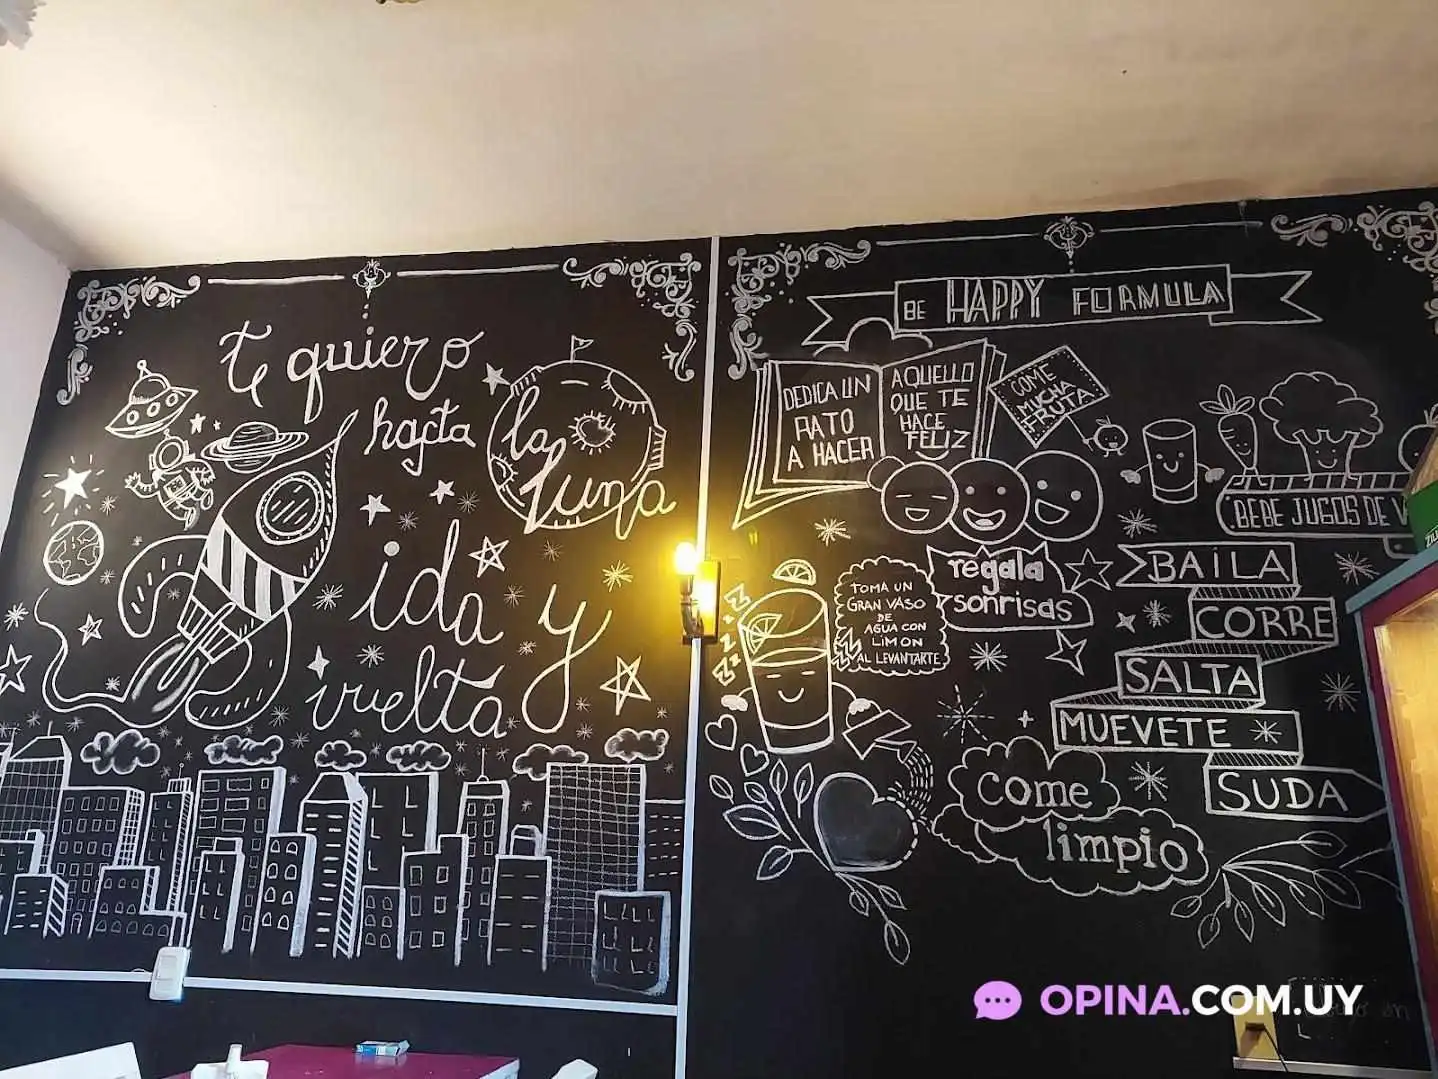 te quiero
hasta
la
luna
ida y
vuelta
BE HAPPY FORMULA
DEDICA UN
RATO
A HACER
AQUELLO
QUE TE
HACE
FELIZ
COME
MUCHA
FRUTA
BEBE JUGOS DE
TOMA UN
GRAN VASO
DE
AGUA CON
LIMON
AL LEVANTARTE
regala
sonrisas
BAILA
CORRE
SALTA
MUEVETE
SUDA
come
limpio
OPINA.COM.UY